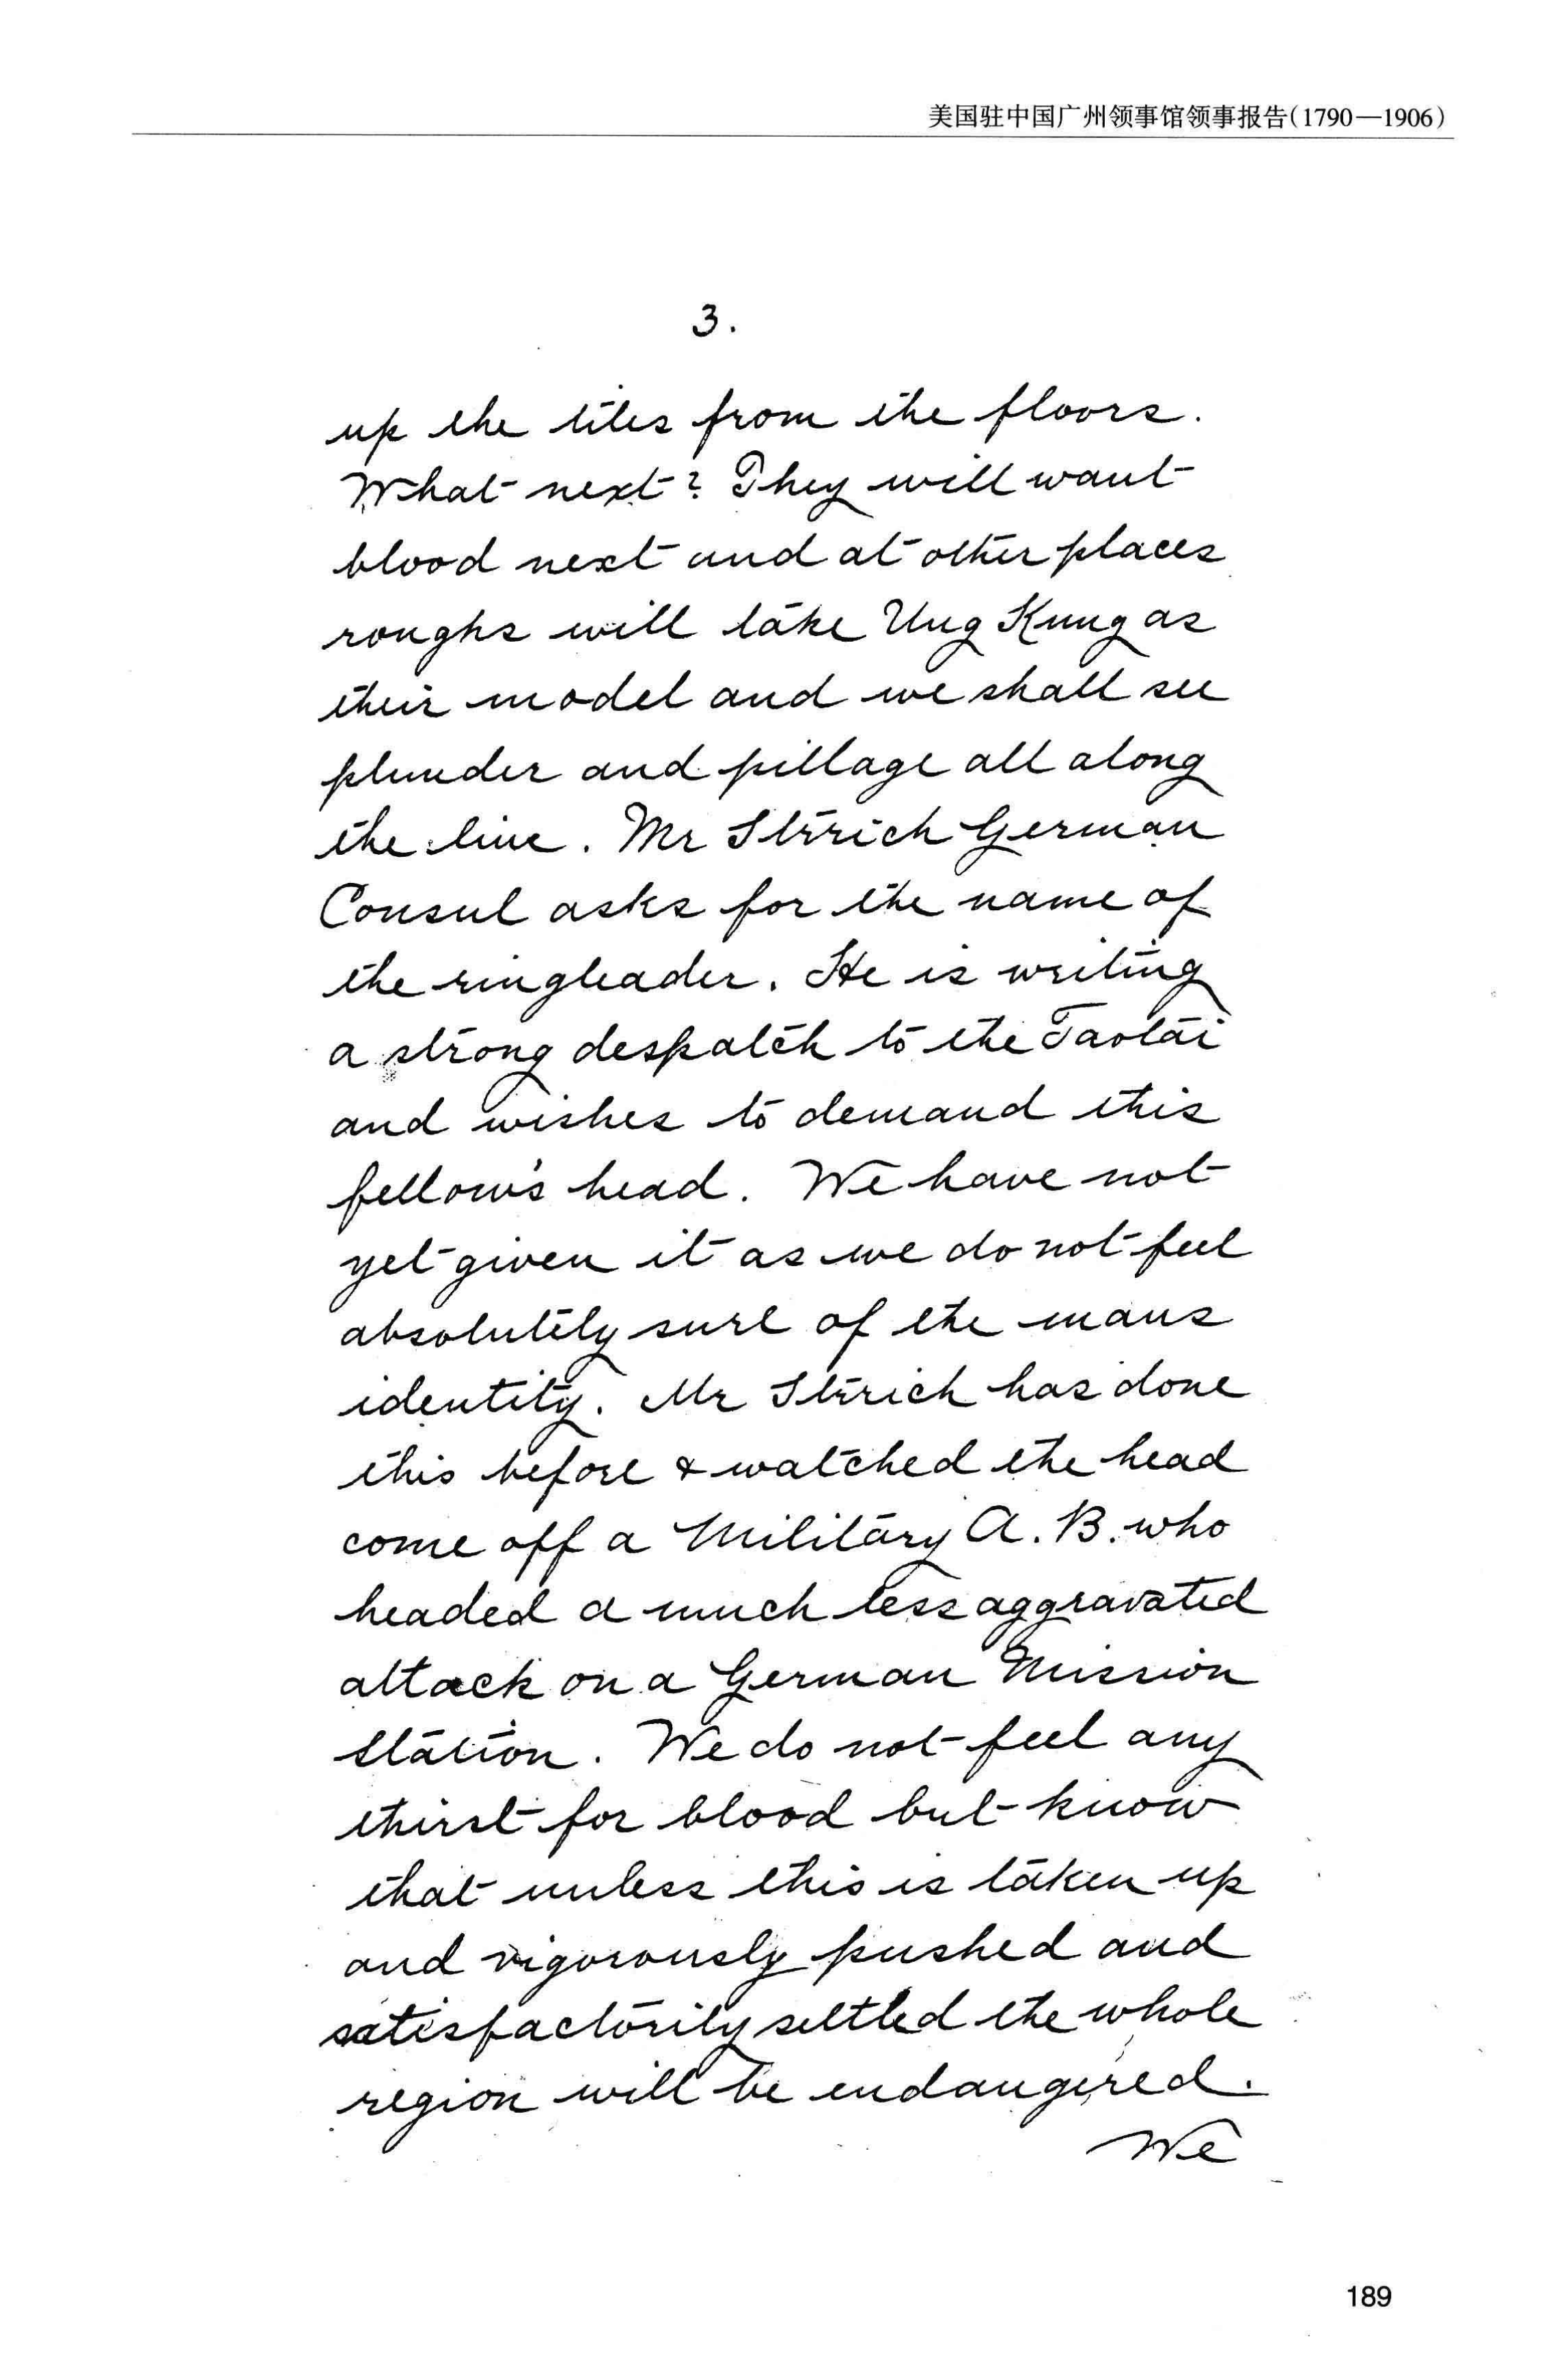 美国驻中国广州领事馆领事报告(1790—1906)
3.
up the tiles from the floors.
What next? They will want
blood next and at other places
roughs will take Ung Kung as
their model and we shall see
plunder and pillage all along
the line. Mr Streich German
Consul asks for the name of
the ringleader. He is writing
a strong despatch to the Taotai
and wishes to demand this
fellow's head. We have not
yet given it as we do not feel
absolutely sure of the mans
identity. Mr Streich has done
this before & watched the head
come off a Military A. B. who
headed a much less aggravated
attack on a German Mission
Station. We do not feel any
thirst for blood but know
that unless this is taken up
and vigorously pushed and
satisfactorily settled the whole
region will be endangered.
We
189